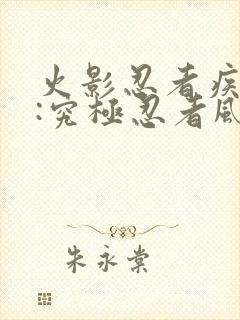 火影忍者疾
:究極忍者風
朱永棠